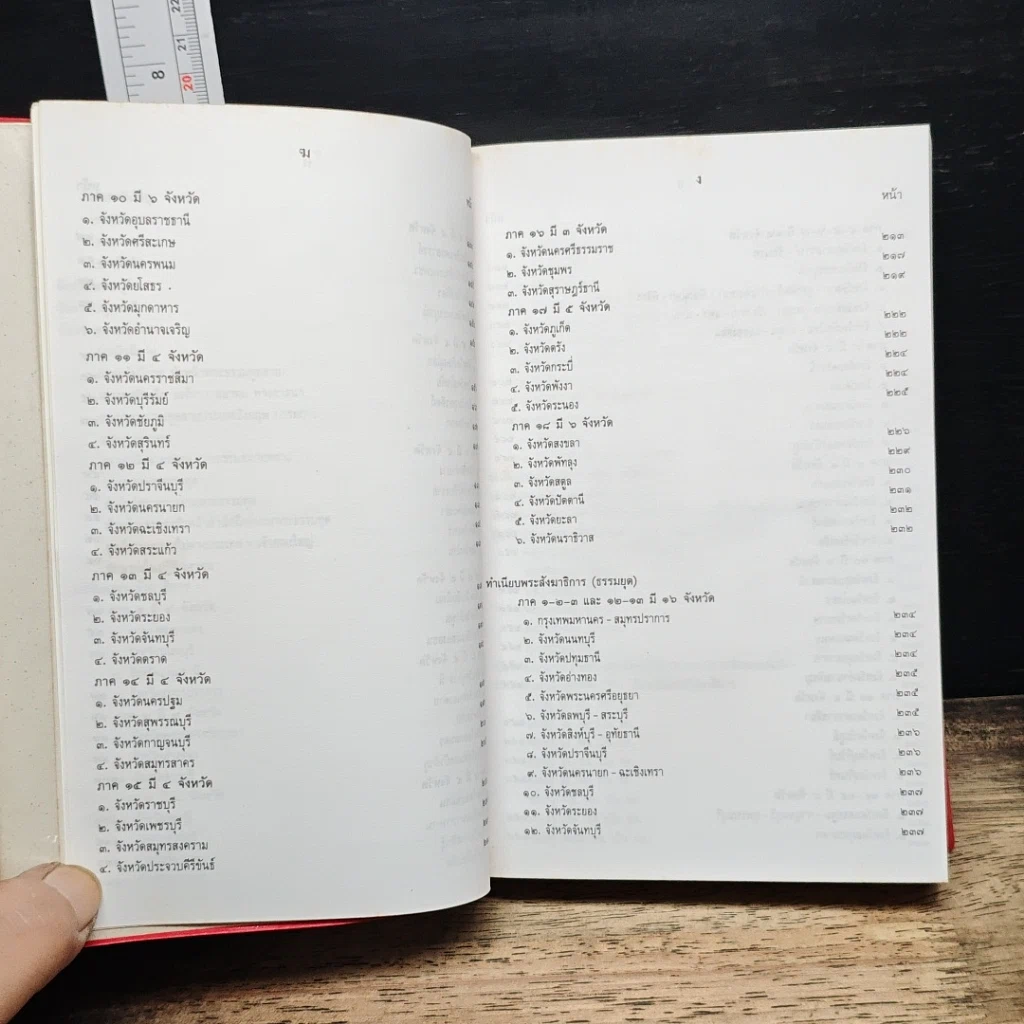 22
21
20
8
ฆ
ภาค ๑๐ มี ๖ จังหวัด
๑. จังหวัดอุบลราชธานี
๒. จังหวัดศรีสะเกษ
๓. จังหวัดนครพนม
๔. จังหวัดยโสธร
๕. จังหวัดมุกดาหาร
๖. จังหวัดอำนาจเจริญ
ภาค ๑๑ มี ๔ จังหวัด
๑. จังหวัดนครราชสีมา
๒. จังหวัดบุรีรัมย์
๓. จังหวัดชัยภูมิ
๔. จังหวัดสุรินทร์
ภาค ๑๒ มี ๔ จังหวัด
๑. จังหวัดปราจีนบุรี
๒. จังหวัดนครนายก
๓. จังหวัดฉะเชิงเทรา
๔. จังหวัดสระแก้ว
ภาค ๑๓ มี ๔ จังหวัด
๑. จังหวัดชลบุรี
๒. จังหวัดระยอง
๓. จังหวัดจันทบุรี
๔. จังหวัดตราด
ภาค ๑๔ มี ๔ จังหวัด
๑. จังหวัดนครปฐม
๒. จังหวัดสุพรรณบุรี
๓. จังหวัดกาญจนบุรี
๔. จังหวัดสมุทรสาคร
ภาค ๑๕ มี ๔ จังหวัด
๑. จังหวัดราชบุรี
๒. จังหวัดเพชรบุรี
๓. จังหวัดสมุทรสงคราม
๔. จังหวัดประจวบคีรีขันธ์
ง
หน้า
ภาค ๑๖ มี ๓ จังหวัด
๑. จังหวัดนครศรีธรรมราช ๒๑๓
๒. จังหวัดชุมพร ๒๑๗
๓. จังหวัดสุราษฎร์ธานี ๒๑๙
ภาค ๑๗ มี ๕ จังหวัด
๑. จังหวัดภูเก็ต ๒๒๒
๒. จังหวัดตรัง ๒๒๒
๓. จังหวัดกระบี่ ๒๒๔
๔. จังหวัดพังงา ๒๒๔
๕. จังหวัดระนอง ๒๒๕
ภาค ๑๘ มี ๖ จังหวัด
๑. จังหวัดสงขลา ๒๒๖
๒. จังหวัดพัทลุง ๒๒๙
๓. จังหวัดสตูล ๒๓๐
๔. จังหวัดปัตตานี ๒๓๑
๕. จังหวัดยะลา ๒๓๒
๖. จังหวัดนราธิวาส ๒๓๒
ทำเนียบพระสังฆาธิการ (ธรรมยุต)
ภาค ๑-๒-๓ และ ๑๒-๑๓ มี ๑๖ จังหวัด
๑. กรุงเทพมหานคร - สมุทรปราการ ๒๓๔
๒. จังหวัดนนทบุรี ๒๓๔
๓. จังหวัดปทุมธานี ๒๓๔
๔. จังหวัดอ่างทอง ๒๓๕
๕. จังหวัดพระนครศรีอยุธยา ๒๓๕
๖. จังหวัดลพบุรี - สระบุรี ๒๓๕
๗. จังหวัดสิงห์บุรี - อุทัยธานี ๒๓๖
๘. จังหวัดปราจีนบุรี ๒๓๖
๙. จังหวัดนครนายก - ฉะเชิงเทรา ๒๓๖
๑๐. จังหวัดชลบุรี ๒๓๗
๑๑. จังหวัดระยอง ๒๓๗
๑๒. จังหวัดจันทบุรี ๒๓๗